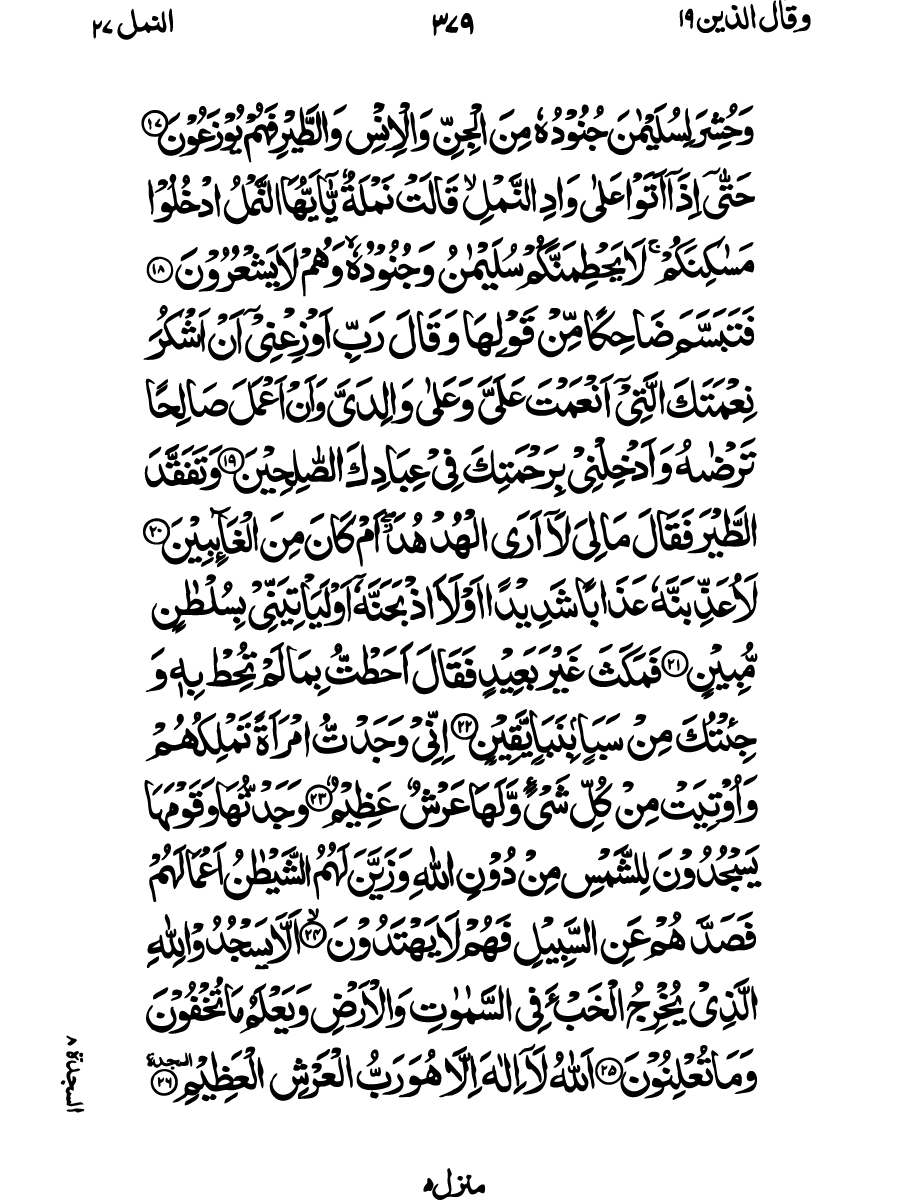 وقال الذين ١٩ ٣٧٩ النمل ٢٧
وَحُشِرَ لِسُلَيْمٰنَ جُنُوْدُهٗ مِنَ الْجِنِّ وَالْاِنْسِ وَالطَّيْرِ فَهُمْ يُوْزَعُوْنَ ﴿١٧﴾
حَتّٰۤى اِذَاۤ اَتَوْا عَلٰى وَادِ النَّمْلِ ۙ قَالَتْ نَمْلَةٌ يّٰۤاَيُّهَا النَّمْلُ ادْخُلُوْا
مَسٰكِنَكُمْ ۚ لَا يَحْطِمَنَّكُمْ سُلَيْمٰنُ وَجُنُوْدُهٗ ۙ وَهُمْ لَا يَشْعُرُوْنَ ﴿١٨﴾
فَتَبَسَّمَ ضَاحِكًا مِّنْ قَوْلِهَا وَقَالَ رَبِّ اَوْزِعْنِىْۤ اَنْ اَشْكُرَ
نِعْمَتَكَ الَّتِىْۤ اَنْعَمْتَ عَلَىَّ وَعَلٰى وَالِدَىَّ وَاَنْ اَعْمَلَ صَالِحًا
تَرْضٰٮهُ وَاَدْخِلْنِىْ بِرَحْمَتِكَ فِىْ عِبَادِكَ الصّٰلِحِيْنَ ﴿١٩﴾ وَتَفَقَّدَ
الطَّيْرَ فَقَالَ مَا لِىَ لَاۤ اَرَى الْهُدْهُدَ ۖ اَمْ كَانَ مِنَ الْغَآٮِٕبِيْنَ ﴿٢٠﴾
لَاُعَذِّبَنَّهٗ عَذَابًا شَدِيْدًا اَوْ لَا۟اَذْبَحَنَّهٗۤ اَوْ لَيَاْتِيَنِّىْ بِسُلْطٰنٍ
مُّبِيْنٍ ﴿٢١﴾ فَمَكَثَ غَيْرَ بَعِيْدٍ فَقَالَ اَحَطْتُّ بِمَا لَمْ تُحِطْ بِهٖ وَ
جِئْتُكَ مِنْ سَبَاٍۢ بِنَبَاٍ يَّقِيْنٍ ﴿٢٢﴾ اِنِّىْ وَجَدْتُّ امْرَاَةً تَمْلِكُهُمْ
وَاُوْتِيَتْ مِنْ كُلِّ شَىْءٍ وَّلَهَا عَرْشٌ عَظِيْمٌ ﴿٢٣﴾ وَجَدْتُّهَا وَقَوْمَهَا
يَسْجُدُوْنَ لِلشَّمْسِ مِنْ دُوْنِ اللّٰهِ وَزَيَّنَ لَهُمُ الشَّيْطٰنُ اَعْمَالَهُمْ
فَصَدَّهُمْ عَنِ السَّبِيْلِ فَهُمْ لَا يَهْتَدُوْنَ ۙ ﴿٢٤﴾ اَلَّا يَسْجُدُوْا لِلّٰهِ
الَّذِىْ يُخْرِجُ الْخَبْءَ فِى السَّمٰوٰتِ وَالْاَرْضِ وَيَعْلَمُ مَا تُخْفُوْنَ
وَمَا تُعْلِنُوْنَ ﴿٢٥﴾ اَللّٰهُ لَاۤ اِلٰهَ اِلَّا هُوَ رَبُّ الْعَرْشِ الْعَظِيْمِ السجدة ﴿٢٦﴾
السجدة ٨
منزل ٥